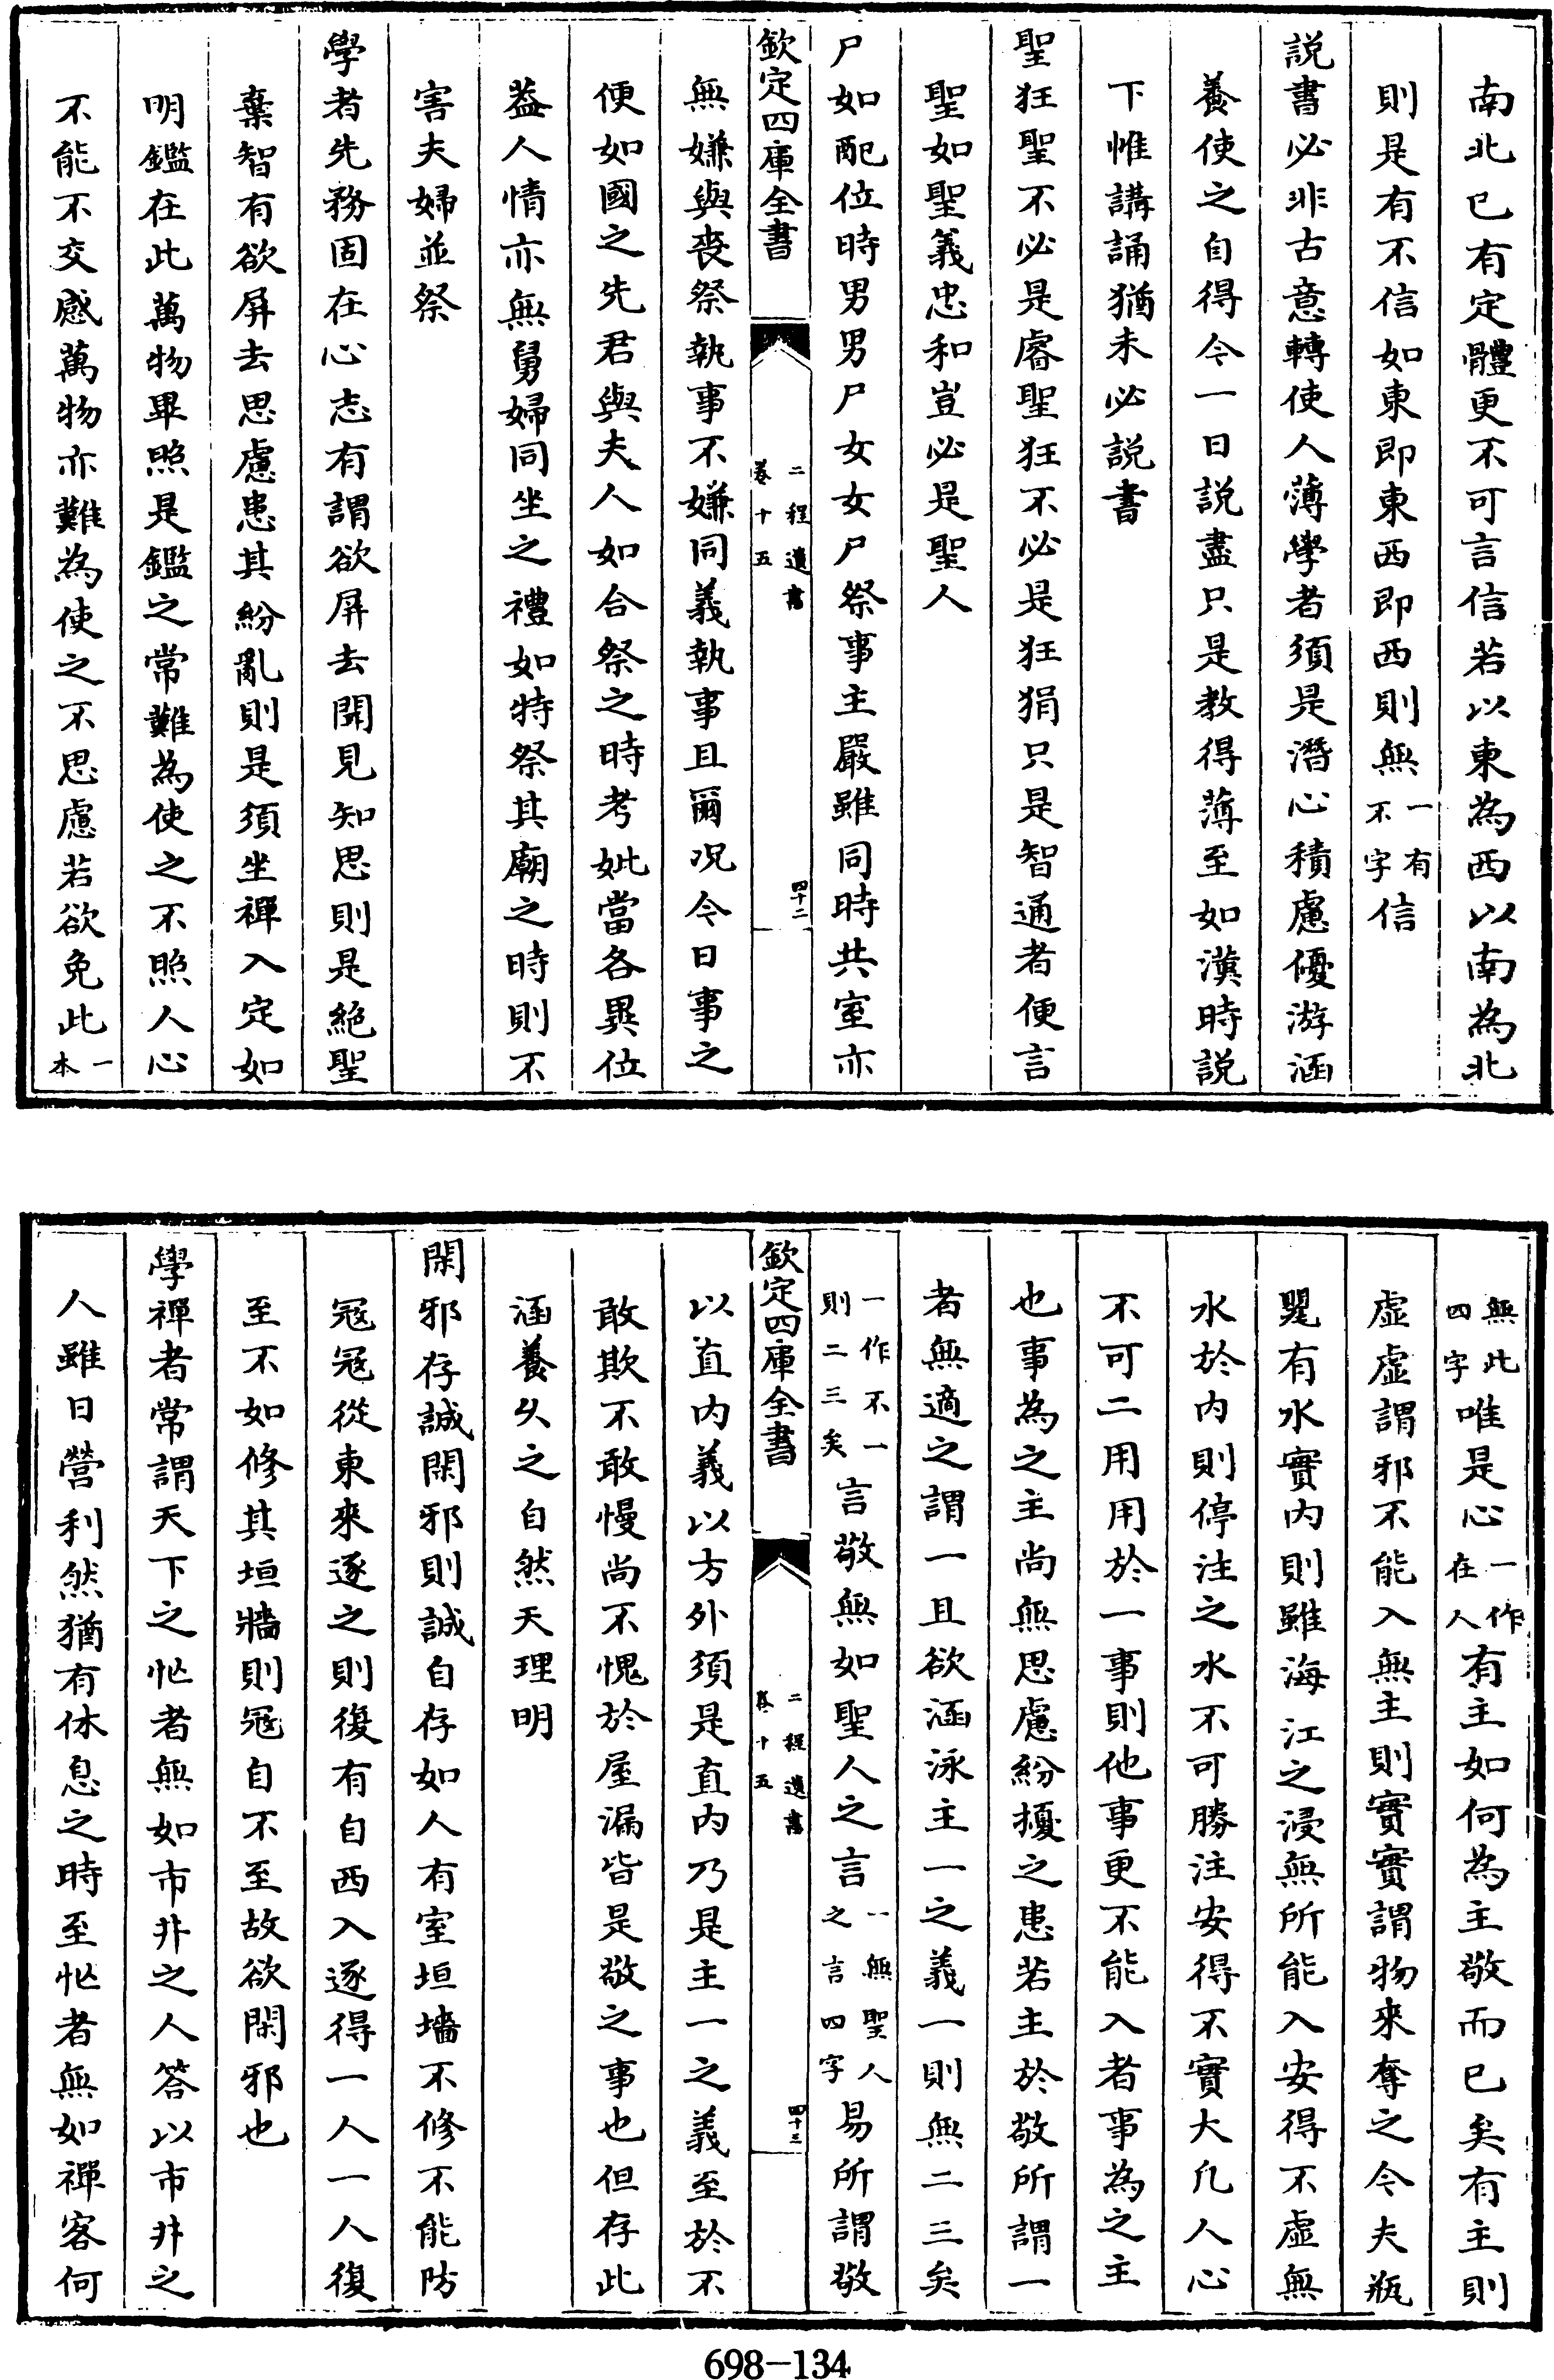 南北已有定體更不可言信若以東為西以南為北
則是有不信如東即東西即西則無一有不字信
説書必非古意轉使人薄學者須是潛心積慮優游涵
養使之自得今一日説盡只是教得薄至如漢時説
下惟講誦猶未必説書
聖狂聖不必是睿聖狂不必是狂狷只是智通者便言
聖如聖義忠和豈必是聖人
尸如配位時男男尸女女尸祭事主嚴雖同時共室亦
欽定四庫全書
二程遺書
卷十五
四十二
無嫌與喪祭執事不嫌同義執事且爾况今日事之
便如國之先君與夫人如合祭之時考妣當各異位
葢人情亦無舅婦同坐之禮如特祭其廟之時則不
害夫婦並祭
學者先務固在心志有謂欲屏去聞見知思則是絶聖
棄智有欲屏去思慮患其紛亂則是須坐禪入定如
明鑑在此萬物畢照是鑑之常難為使之不照人心
不能不交感萬物亦難為使之不思慮若欲免此一本
無此四字唯是心一作在人有主如何為主敬而已矣有主則
虚虚謂邪不能入無主則實實謂物來奪之今夫瓶
甖有水實内則雖海江之浸無所能入安得不虚無
水於内則停注之水不可勝注安得不實大凡人心
不可二用用於一事則他事更不能入者事為之主
也事為之主尚無思慮紛擾之患若主於敬所謂一
者無適之謂一且欲涵泳主一之義一則無二三矣
一作不一則二三矣言敬無如聖人之言一無聖人之言四字易所謂敬
欽定四庫全書
二程遺書
卷十五
四十三
以直内義以方外須是直内乃是主一之義至於不
敢欺不敢慢尚不愧於屋漏皆是敬之事也但存此
涵養久之自然天理明
閑邪存誠閑邪則誠自存如人有室垣墻不修不能防
冦冦從東來逐之則復有自西入逐得一人一人復
至不如修其垣牆則冦自不至故欲閑邪也
學禪者常謂天下之忙者無如市井之人答以市井之
人雖日營利然猶有休息之時至忙者無如禪客何
698-134